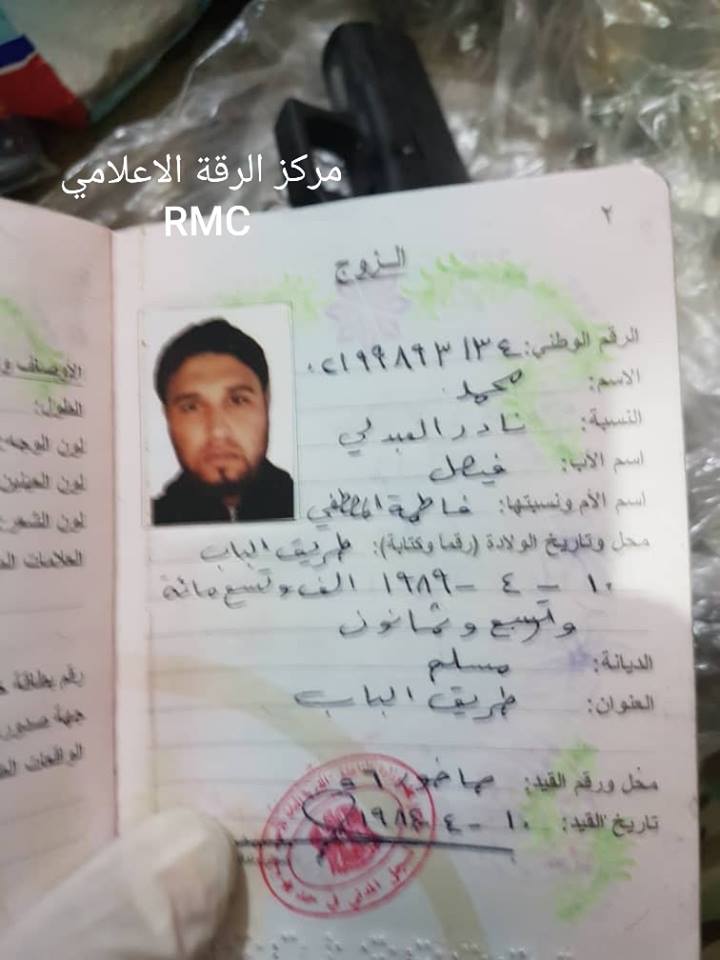 مركز الرقة الاعلامي
RMC
٢
الزوج
الرقم الوطني: ٠٢١٩٩٨٩٣١٣٤
الاسم: محمد
النسبة: نادر العبدلي
اسم الأب: فيصل
اسم الأم ونسبتها: فاطمة المصطفى
محل وتاريخ الولادة (رقما وكتابة): طريق الباب
١٠ - ٤ - ١٩٨٩ الف وتسع مائة
وتسع وثمانون
الديانة: مسلم
العنوان: طريق الباب
محل ورقم القيد:
تاريخ القيد: ١٠ - ٤ -
الطول:
لون الوجه:
لون العينين
لون الشعر:
العلامات
رقم بطاقة
جهة